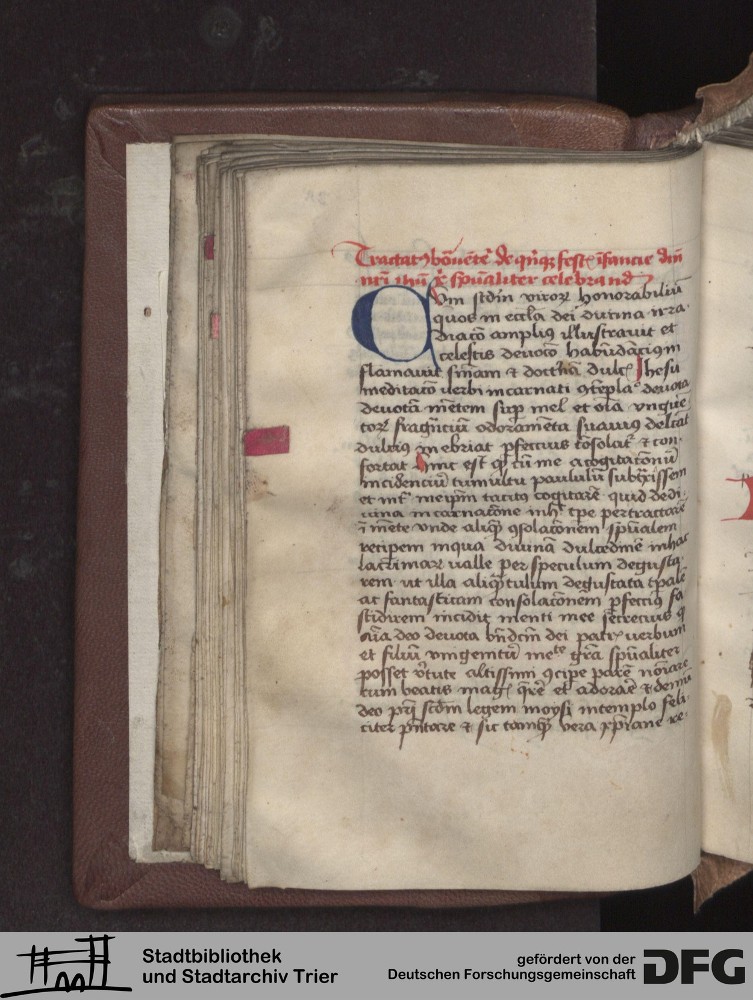 Tractatꝰ bōuētē de qn̄qꝫ fest īfancie dn̄i
nr̄i ihū x̄ spūaliter celebrand
Cum scdm viroꝝ honorabiliū
quos in eccl̄a dei diuina irra
diacō amplius illustrauit et
celestis deuocō habūdāciꝰ in
flāmauit sn̄iam et doctnā dulc Jhesu
meditacō verbi incarnati cōtēpla deuota
deuotā mētem sup mel et oīa vngue
toꝝ fragūciū odorameta suauiꝰ delcāt
dulciꝰ inebriat pfecciꝰ cōsolat et con
fortat hinc est qd cū me a cogitacōnū
incidenciū tumultu paululū subtxissem
et int meipm tacitꝰ cogitarē quid de di
uina incarnacōne inh tpe pertractarē
ī mēte vnde aliqȝ cōsolacōnem spūalem
recipem in qua diuinā dulcedinē in hac
lacrimaꝝ ualle per speculum degusta
rem ut illa aliqȝtulum degustata tpalē
ac fantasticam consolacōnem pfecciꝰ fa
stidirem incidit menti mee secreciꝰ qȝ
aīa deo deuota bn̄dcm dei patr verbum
et filiū vnigenitū mete gr̄a spūaliter
posset vtute altissimi cōcipe parē noīare
cum beatis mag qrē et adorarē et demū
deo pri scdm legem moysi in templo feli
citer pn̄tare et sic tamqȝ vera xp̄iane re
Stadtbibliothek
und Stadtarchiv Trier
gefördert von der
Deutschen Forschungsgemeinschaft
DFG